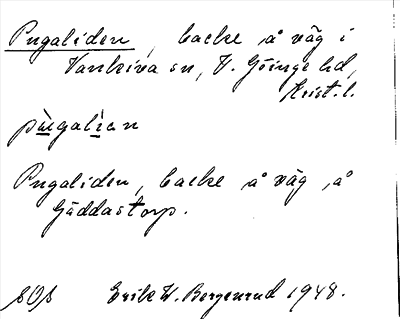 Pugaliden, backe å väg i
Vankiva sn, V. Göinge hd,
Krist. l.
pùigalìen
Pugaliden, backe å väg å
Gäddastorp.
SOS Erik W. Bergenrud 1948.